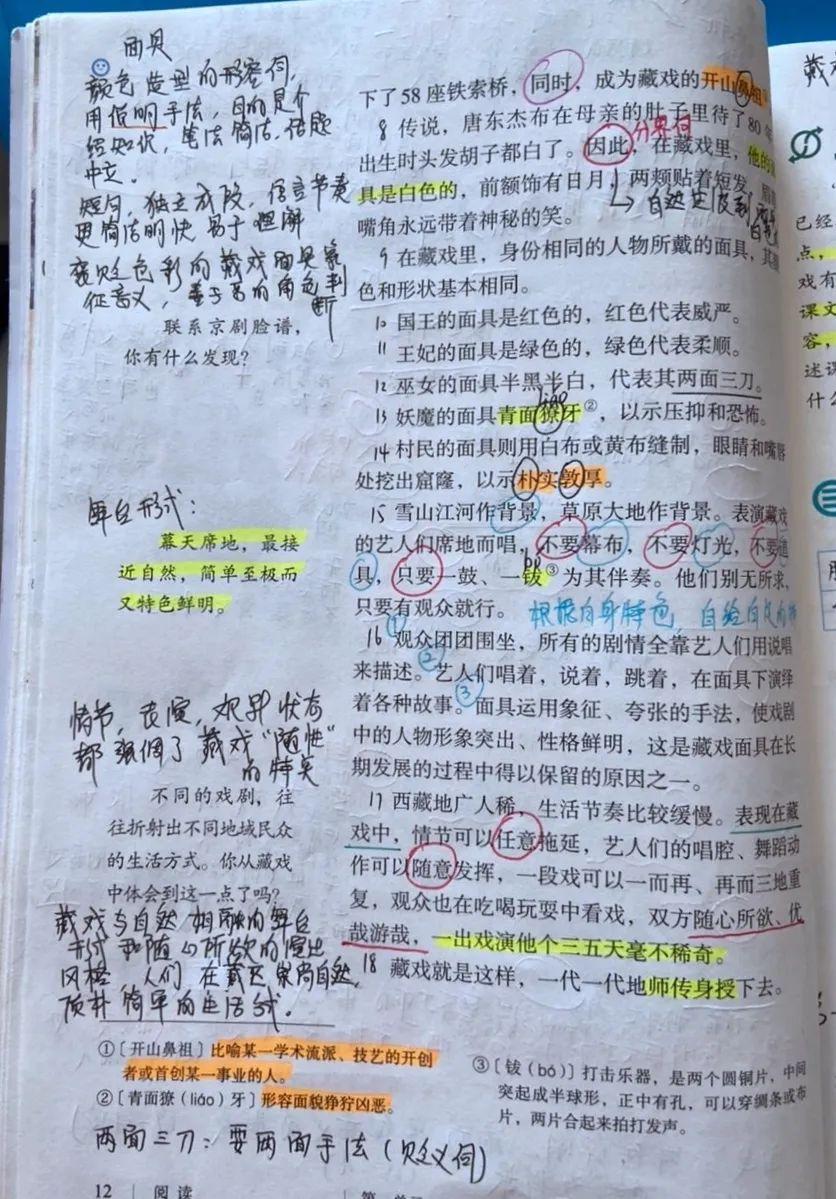 面具
颜色造型的形容词，
用说明手法，目的是介
绍知识，笔法简洁，语题
中立。
短句，独立成段，信立节奏
更简洁明快 易于理解
褒贬色彩的藏戏面具象
征意义，善于恶的角色判
断
联系京剧脸谱，
你有什么发现？
舞台形式：
幕天席地，最接
近自然，简单至极而
又特色鲜明。
情节，表演，观众状态
都强调了藏戏“随性”
的特点
不同的戏剧，往
往折射出不同地域民众
的生活方式。你从藏戏
中体会到这一点了吗？
藏戏与自然相融的舞台
形式和随心所欲的演出
风格 人们在藏区崇尚自然，
质朴简单的生活方式。
下了58座铁索桥，同时，成为藏戏的开山鼻祖
8 传说，唐东杰布在母亲的肚子里待了80年
分界句
出生时头发胡子都白了。因此，在藏戏里，他的面
具是白色的，前额饰有日月，两颊贴着短发
嘴角永远带着神秘的笑。
自然过渡到
9 在藏戏里，身份相同的人物所戴的面具，其颜
色和形状基本相同。
10 国王的面具是红色的，红色代表威严。
11 王妃的面具是绿色的，绿色代表柔顺。
12 巫女的面具半黑半白，代表其两面三刀。
liáo
13 妖魔的面具青面獠牙②，以示压抑和恐怖。
14 村民的面具则用白布或黄布缝制，眼睛和嘴唇
处挖出窟窿，以示朴实敦厚。
15 雪山江河作背景，草原大地作背景。表演藏戏
的艺人们席地而唱，不要幕布，不要灯光，不要道
bó
具，只要一鼓、一钹③为其伴奏。他们别无所求，
只要有观众就行。 根据自身特色，自给自足的
16 观众团团围坐，所有的剧情全靠艺人们用说唱
来描述。②艺人们唱着，说着，跳着，在面具下演绎
着各种故事。③面具运用象征、夸张的手法，使戏剧
中的人物形象突出、性格鲜明，这是藏戏面具在长
期发展的过程中得以保留的原因之一。
17 西藏地广人稀，生活节奏比较缓慢。表现在藏
戏中，情节可以任意拖延，艺人们的唱腔、舞蹈动
作可以随意发挥，一段戏可以一而再、再而三地重
复，观众也在吃喝玩耍中看戏，双方随心所欲、优
哉游哉，一出戏演他个三五天毫不稀奇。
18 藏戏就是这样，一代一代地师传身授下去。
①〔开山鼻祖〕比喻某一学术流派、技艺的开创
者或首创某一事业的人。
②〔青面獠（liáo）牙〕形容面貌狰狞凶恶。
③〔钹（bó）〕打击乐器，是两个圆铜片，中间
突起成半球形，正中有孔，可以穿绸条或布
片，两片合起来拍打发声。
两面三刀：耍两面手法（贬义词）
12 阅读
藏
已经
点，
戏有
课文
容，
述课
什么
三